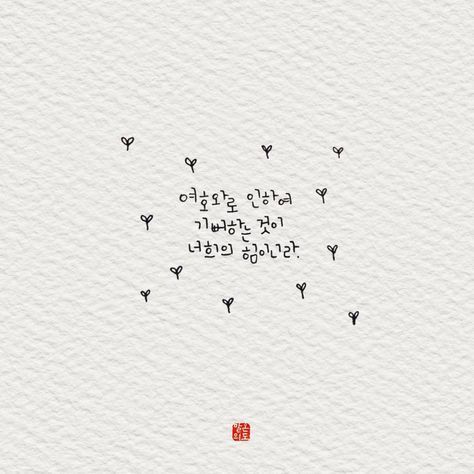 여호와로 인하여
기뻐하는 것이
너희의 힘이니라.